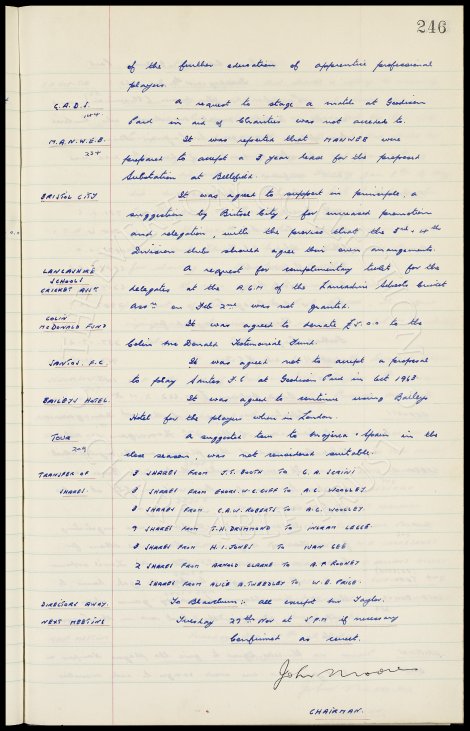 246
of the further education of apprentice professional
players.
G.A.D.S. A request to stage a match at Goodison
144 Park in aid of Charities was not acceded to.
M.A.N.W.E.B. It was reported that MANWEB were
234 prepared to accept a 3 year lease for the proposed
Substation at Bellefield.
BRISTOL CITY It was agreed to support in principle, a
suggestion by Bristol City, for increased promotion
and relegation, with the proviso that the 3rd & 4th
Division clubs should agree their own arrangements.
LANCASHIRE A request for complimentary tickets for the
SCHOOLS delegates at the A.G.M of the Lancashire Schools Cricket
CRICKET ASSN. Assn on Feb 2nd was not granted.
COLIN It was agreed to donate £5.0.0 to the
McDONALD FUND Colin McDonald Testimonial Fund.
SANTOS. F.C It was agreed not to accept a proposal
to play Santos F.C at Goodison Park in Oct 1963
BAILEYS HOTEL. It was agreed to continue using Baileys
Hotel for the players when in London.
TOUR A suggested tour to Majorca & Spain in the
209 close season, was not considered suitable.
TRANSFER OF 3 SHARES FROM J.T. BOOTH TO G.A. SCRINI
SHARES. 3 SHARES FROM W.C. CUFF TO A.G. WOOLLEY.
3 SHARES FROM C.A.W. ROBERTS TO A.G. WOOLLEY.
9 SHARES FROM T.H. DRUMMOND TO HIRAM LEGGE
3 SHARES FROM H.I. JONES TO IVAN GEE
2 SHARES FROM ARNOLD CLARKE TO A.P ROONEY
2 SHARES FROM ALICE A. TWEEDLEY TO W.E. PRICE.
DIRECTORS AWAY. To Blackburn:- all except Mr Taylor.
NEXT MEETING Tuesday 27th Nov at 5 PM if necessary
Confirmed as correct.
John Moores
CHAIRMAN.